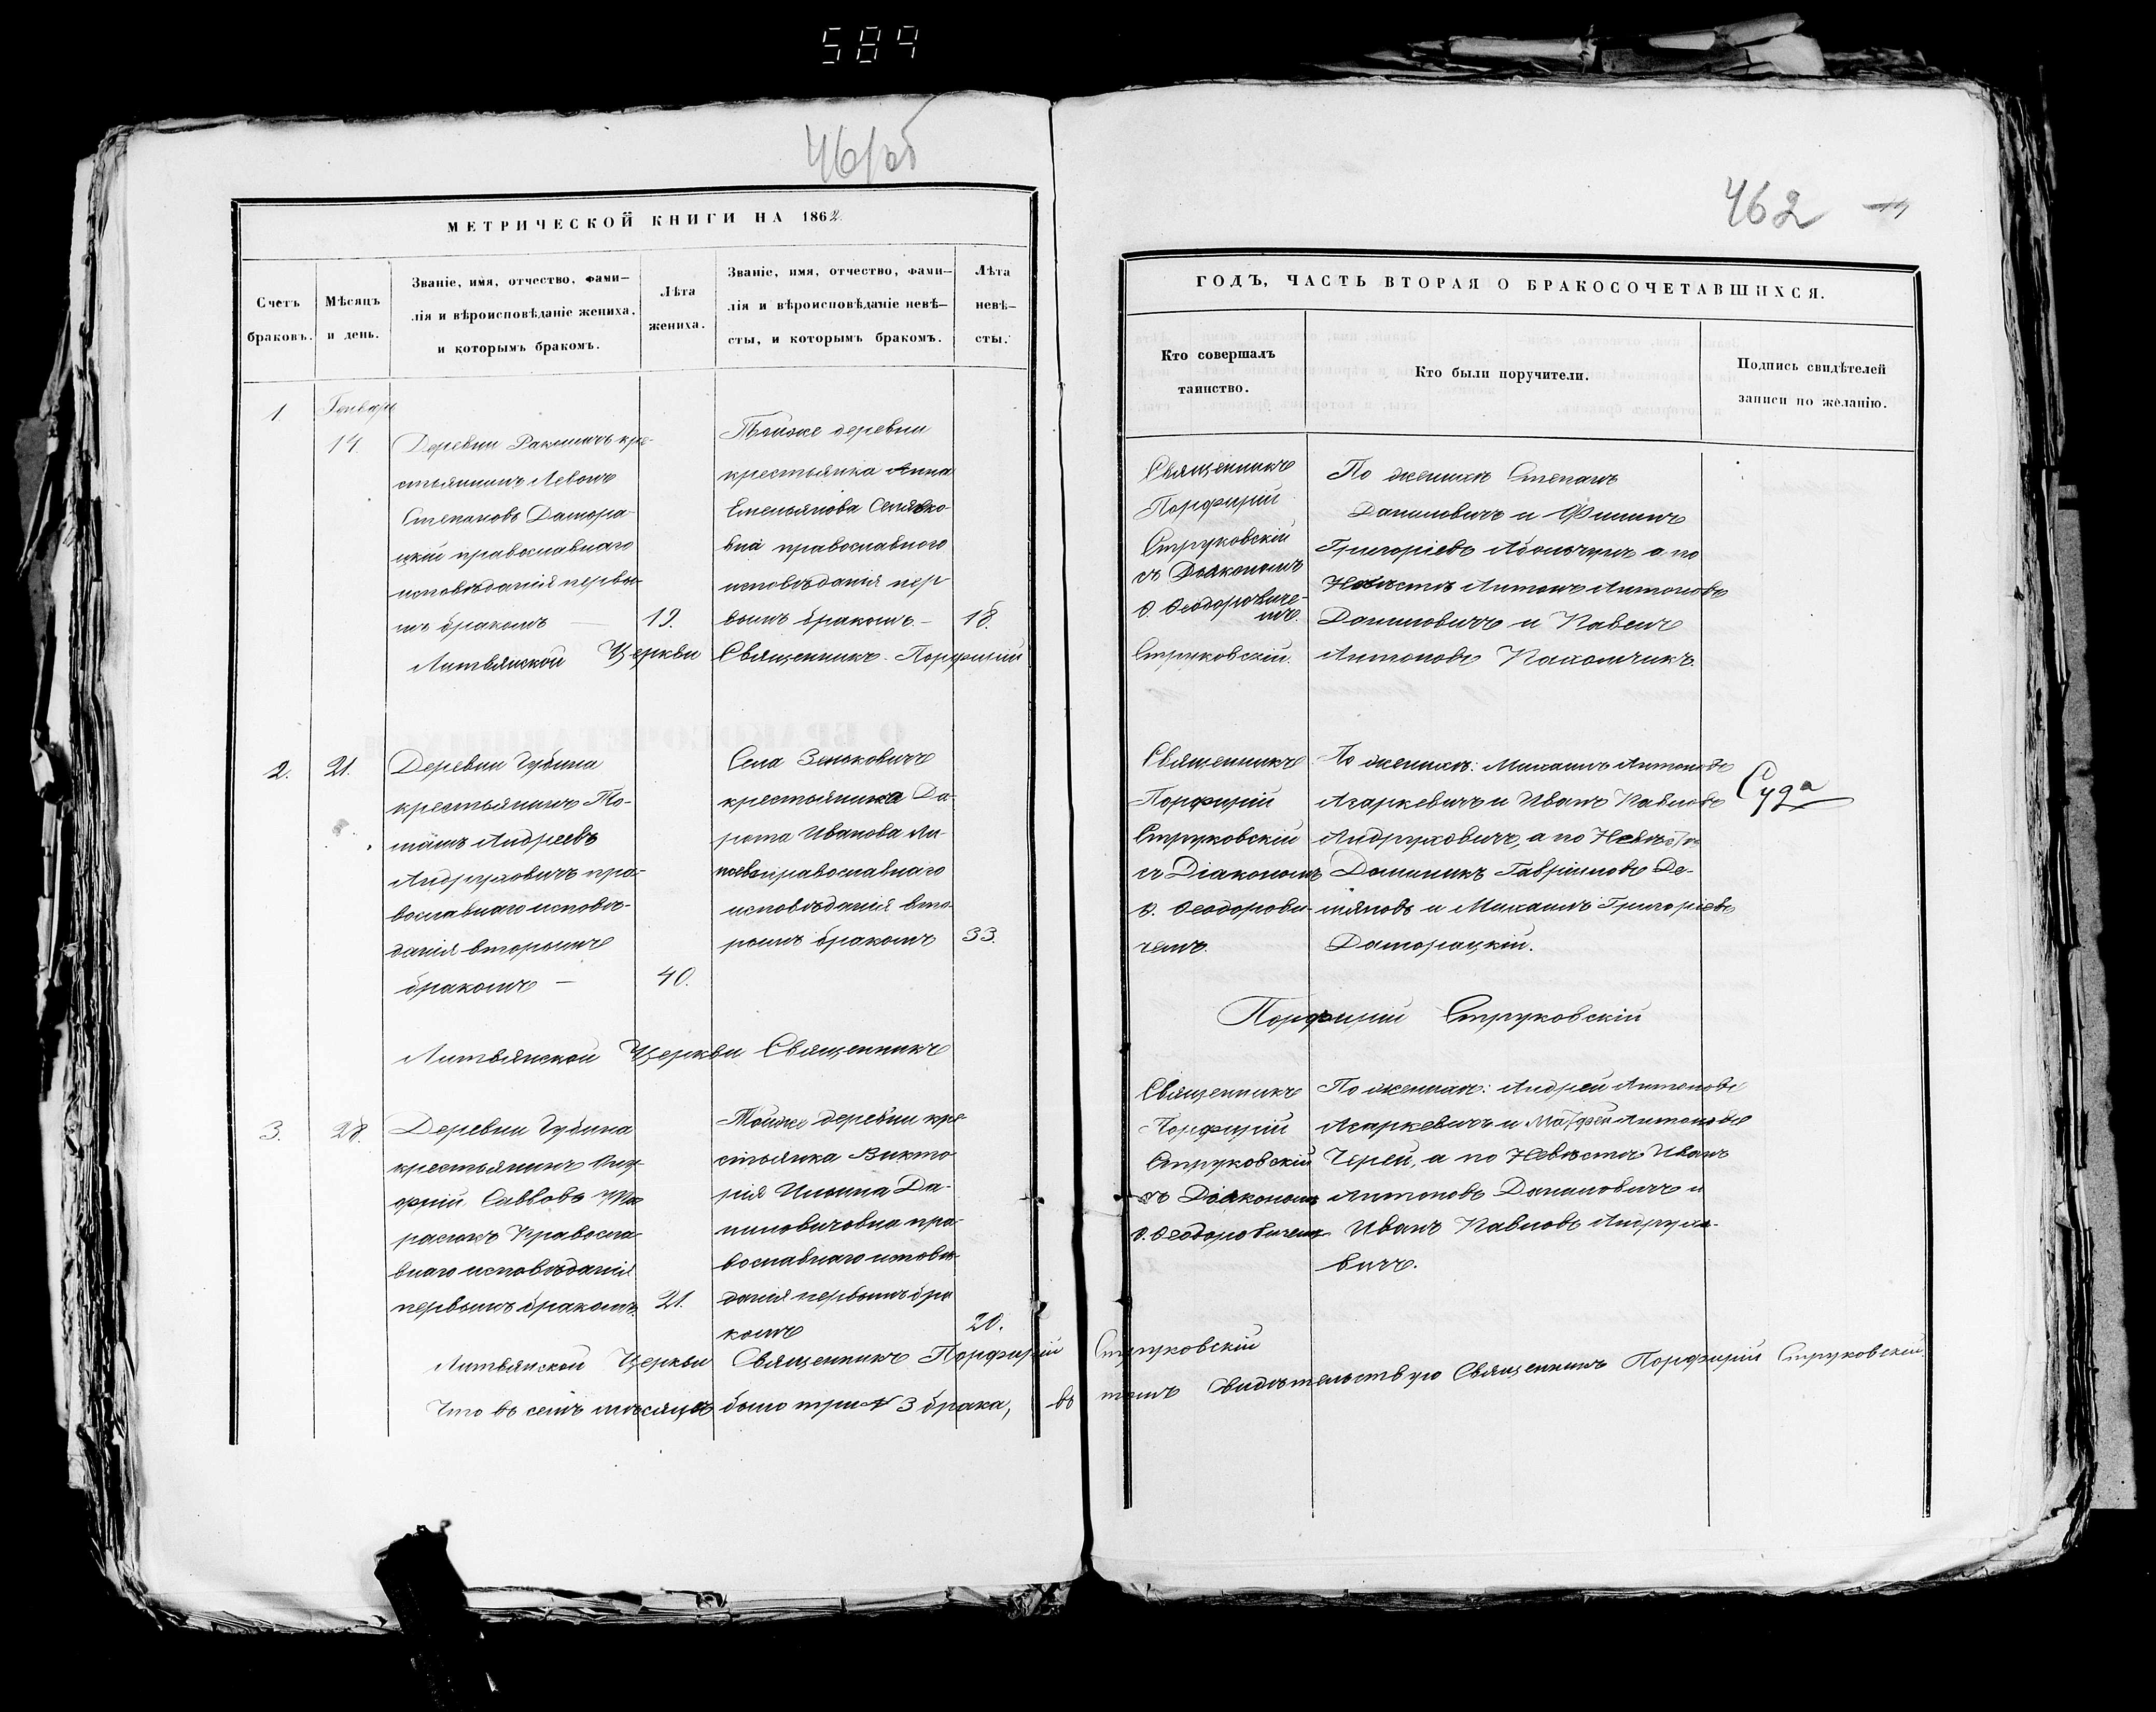 589
461об
МЕТРИЧЕСКОЙ КНИГИ НА 1862.
Счетъ браковъ.
Мѣсяцъ и день.
Званіе, имя, отчество, фами-
лія и вѣроисповѣданіе жениха.
и которымъ бракомъ.
Лѣта жениха.
Званіе, имя, отчество, фами-
лія и вѣроисповѣданіе невѣ-
сты, и которымъ бракомъ.
Лѣта невѣ-
сты.
1
Генварь
14
Деревни Ракошичъ кре-
стьянинъ Левонъ
Степановъ Дамора-
цкій православнаго
исповѣданія первы-
мъ бракомъ —
19.
Тойже деревни
крестьянка Анна
Емельянова Сенявко-
вна православнаго
исповѣданія пер
вымъ бракомъ —
18.
Литвянской Церкви Священникъ Порфирій
2.
21.
Деревни Губина
крестьянинъ То-
машъ Андреевъ
Андруховичъ пра-
вославнаго исповѣ-
данія вторымъ
бракомъ —
40.
Села Зеньковичъ
крестьянка Да-
рота Иванова
православнаго
исповѣданія вто-
рымъ бракомъ
33.
Литвянской Церкви Священникъ
3.
28.
Деревни Губина
крестьянинъ Ону-
фрій Саввовъ
Правосла-
внаго исповѣданія
первымъ бракомъ.
21.
Тойже деревни кре
стьянка Викто
рія Ильина Да-
ниловичовна пра-
вославнаго исповѣ-
данія первымъ бра
комъ
20.
Литвянской Церкви Священникъ Порфирій
Что въ семъ мѣсяцѣ было три № 3 брака, въ
462
ГОДЪ, ЧАСТЬ ВТОРАЯ О БРАКОСОЧЕТАВШИХСЯ.
Кто совершалъ
таинство.
Кто были поручители.
Подпись свидѣтелей
записи по желанію.
Священникъ
Порфирій
Струковскій
съ Діакономъ
Ѳ. Ѳеодоровиче-
мъ.
Струковскій.
По женихѣ Степанъ
Даниловичъ и Филипъ
Григоріевъ а по
Невѣстѣ Антонъ Антоновъ
Даниловичъ и Павелъ
Антоновъ Пахольчикъ.
Священникъ
Порфирій
Струковскій
съ Діакономъ
Ѳ. Ѳеодорови-
чемъ.
По женихѣ: Михаилъ Антоновъ
Агаркевичъ и Иванъ Павловъ
Андруховичъ, а по Невѣстѣ
Доминикъ Гавріиловъ Де-
мяновъ и Михаилъ Григоріевъ
Даморацкій.
Порфирій Струковскій
Священникъ
Порфирій
Струковскій
съ Діакономъ
Ѳ. Ѳеодоровичемъ
По женихѣ: Андрей Антоновъ
Агаркевичъ и Матфей Антоновъ
Черей, а по Невѣстѣ Иванъ
Антоновъ Даниловичъ и
Иванъ Павловъ Андрухо-
вичъ.
Струковскій
томъ Свидѣтельствую Священникъ Порфирій Струковскій.